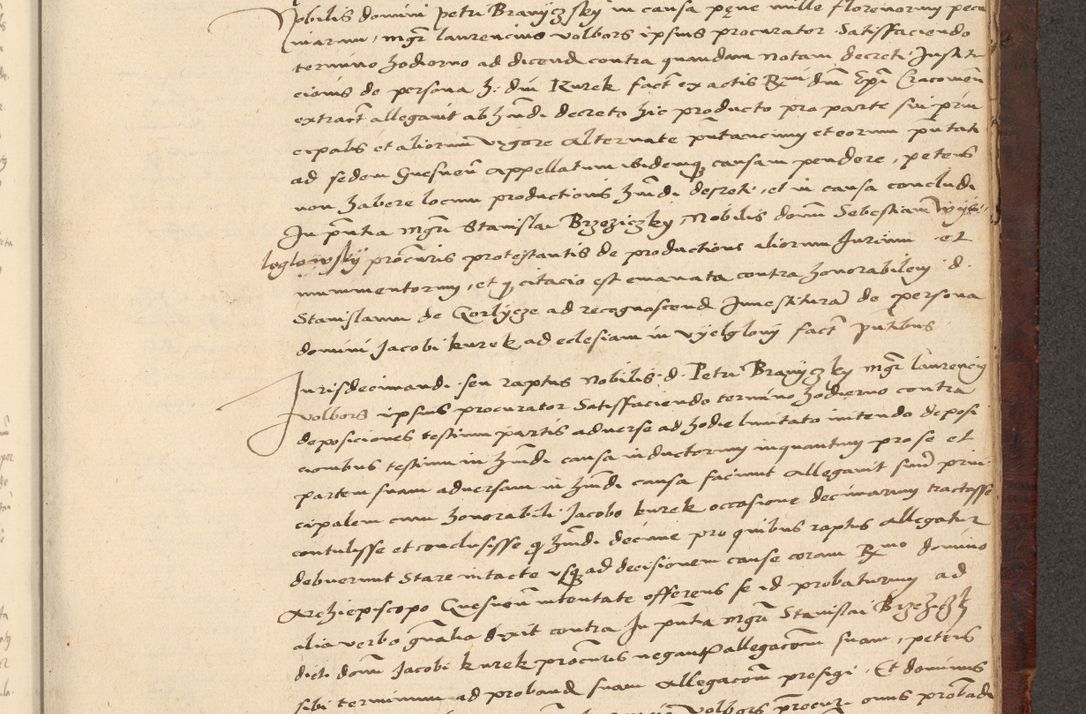 Nobilis domini Petri Branyczsky in causa pene mille florenorum pecu
niarum, Mgr Laurencius Volbors ipsius procurator Satisfaciendo
termino hodierno ad dicend contra quandam notam decreti Justi
cionis de persona h. dni Kurek fact ex actis Rmi dni Epi Cracovien
extract allegavit ab hmdi decreto hic producto pro parte sui prin
cipalis et aliorum vigore alternate pntacionum et eorum pntat
ad sedem Gnesnen appellatum ibidemq causam pendere, petens
non habere locum productionis hmdi decreti, et in causa concludi
In pntia Mgri Stanislai Brzeziczky, Nobilis domi Sebestiani
procuris protestantis de productione aliorum Jurium et
munimentorum, et q citacio est emanata contra honorabilem d.
Stanislaum de Gorlycze ad recognoscend Investitura de persona
domini Jacobi Kurek ad eclesiam in Vyelglowy fact putibus
Juris decimandi seu raptus Nobilis d. Petri Branyczky Mgr Laurenciy
Volbors ipsius procurator Satisfaciendo termino hodierno contra
deposiciones testium partis adverse ad hodie limitato intendo deposi
cionibus testium in hmdi causa inductorum inquantum pro se et
partem suam adversam in hmdi causa faciunt allegavit suu prin
cipalem cum honorabili Jacobo Kurek occasione decimarum tractasse
contulisse et conclusisse q hmdi decime pro quibus raptus allegatur
debuerunt stare intacte usq ad decisionem cause coram Rmo domino
Archiepiscopo Gnesnen intentate offerens se id probaturum ad
alia verbo gnalia dixit contra In pntia Mgri Stanislai Brzezichy
dicti domi Jacobi Kurek procuris negant allegacom suam, petens
sibi terminum ad proband suam allegacom prefigi. Et dominus
Volbors procur onus probadi